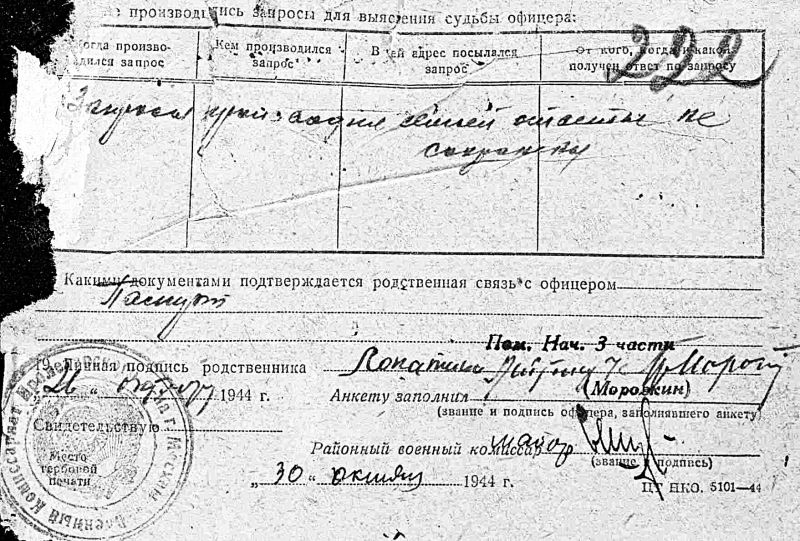 производились запросы для выяснения судьбы офицера:
222
Когда производился запрос
Кем производился запрос
В чей адрес посылался запрос
От кого, когда и какой получен ответ по запросу
Запросы производил семьей ответы не
сохранены
Какими документами подтверждается родственная связь с офицером
Паспорт
Пом. Нач. 3 части
Личная подпись родственника Лопатина
(Морозкин)
„26“ октября 1944 г. Анкету заполнил
(звание и подпись офицера, заполнявшего анкету)
Свидетельствую
Районный военный комиссар майор
Место гербовой печати
(звание и подпись)
„30“ октября 1944 г.
ЦТ НКО. 5101—44